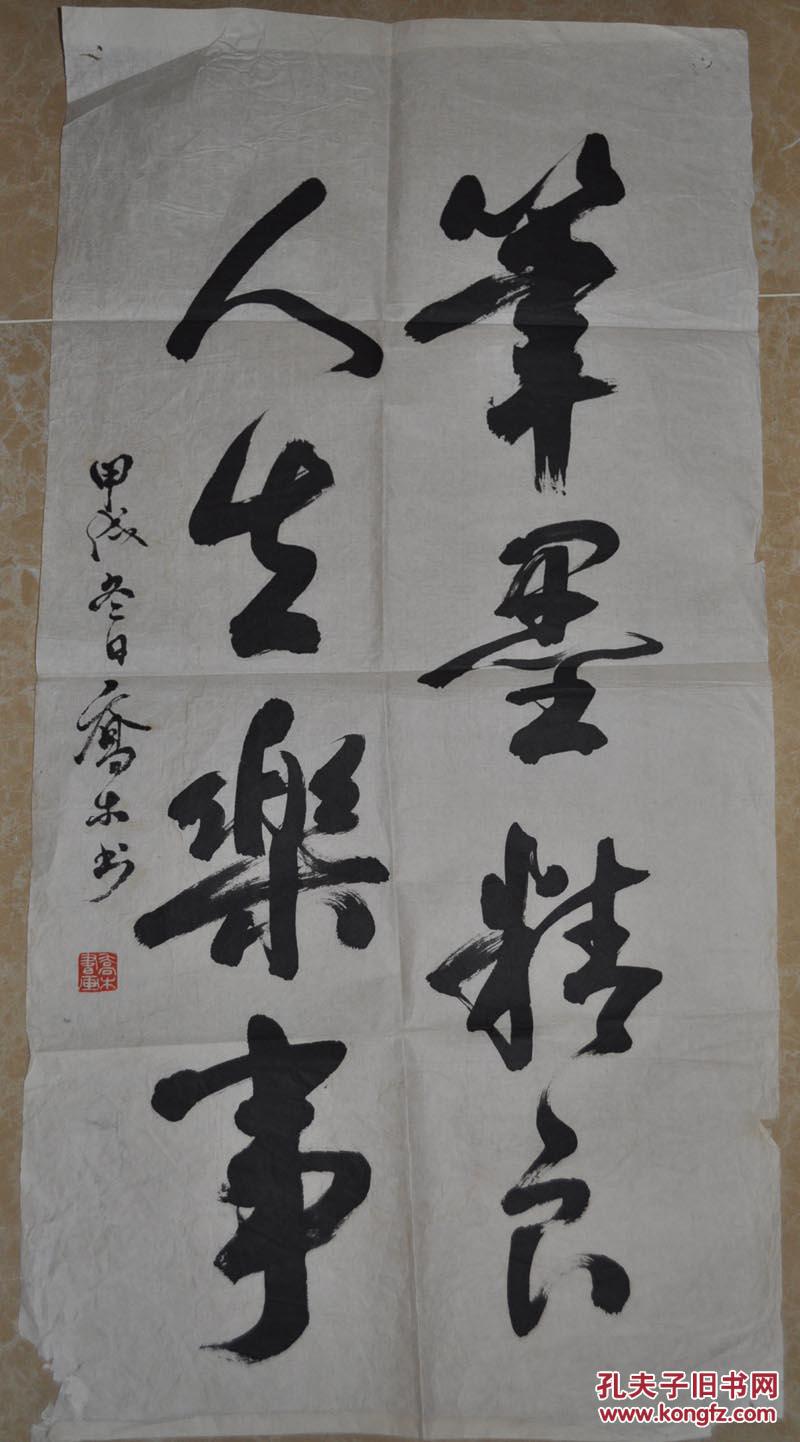 筆墨精良
人生樂事
甲戌冬日喬木书
喬木
書画
孔夫子旧书网
www.kongfz.com